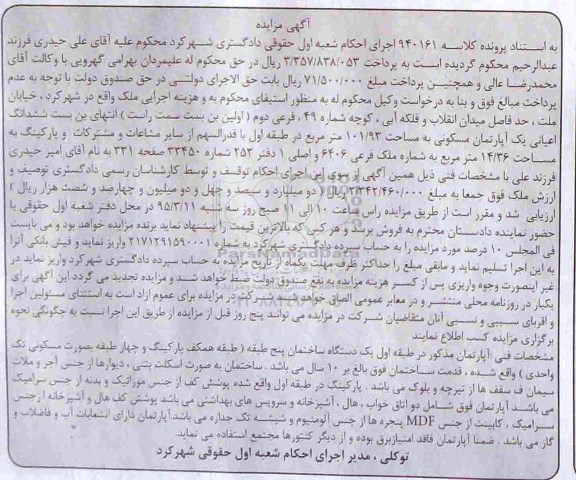 آگهی مزایده
به استناد پرونده کلاسه ۹۴۰۱۶۱ اجرای احکام شعبه اول حقوقی دادگستری شهرکرد محکوم علیه آقای علی حیدری فرزند
عبدالرحیم محکوم گردیده است به پرداخت ۳/۳۵۷/۸۳۸/۰۵۳ ریال در حق محکوم له علیمردان بهرامی گهرویی با وکالت آقای
محمدرضا عالی و همچنین پرداخت مبلغ ۷۱/۵۰۰/۰۰۰ ریال بابت حق الاجرای دولتی در حق صندوق دولت با توجه به عدم
پرداخت مبالغ فوق و بنا به درخواست وکیل محکوم له به منظور استیفای محکوم به و هزینه اجرایی ملک واقع در شهرکرد ، خیابان
ملت ، حد فاصل میدان انقلاب و فلکه آبی ، کوچه شماره ۴۹ ، فرعی دوم ( اولین بن بست سمت راست ) انتهای بن بست ششدانگ
اعیانی یک آپارتمان مسکونی به مساحت ۱۰۱/۹۳ متر مربع در طبقه اول با قدرالسهم از سایر مشاعات و مشترکات و پارکینگ به
مساحت ۱۴/۳۶ متر مربع به شماره ملک فرعی ۶۴۰۶ و اصلی ۱ دفتر ۲۵۳ شماره ۳۳۴۵۰ صفحه ۳۳۱ به نام آقای امیر حیدری
فرزند علی با مشخصات فنی ذیل همین آگهی از سوی این اجرای احکام توقیف و توسط کارشناسان رسمی دادگستری توصیف و
ارزش ملک فوق جمعا به مبلغ ۲/۳۴۲/۴۶۰/۰۰۰ ریال ( دو میلیارد و سیصد و چهل و دو میلیون و چهارصد و شصت هزار ریال )
ارزیابی شد و مقرر است از طریق مزایده راس ساعت ۱۰ الی ۱۱ صبح روز سه شنبه ۹۵/۳/۱۱ در محل دفتر شعبه اول حقوقی با
حضور نماینده دادستان محترم به فروش برسد و هر کس که بالاترین قیمت را پیشنهاد نماید برنده مزایده خواهد بود و می بایست
فی المجلس ۱۰ درصد مورد مزایده را به حساب سپرده دادگستری شهرکرد به شماره ۲۱۷۱۲۹۱۵۹۰۰۰۱ واریز نماید و فیش بانکی آنرا
به این اجرا تسلیم نماید و مابقی مبلغ را حداکثر ظرف مهلت یکماه از تاریخ مزایده به حساب سپرده دادگستری شهرکرد واریز نماید در
غیر اینصورت وجوه واریزی پس از کسر هزینه مزایده به نفع صندوق دولت ضبط خواهد شد و مزایده تجدید می گردد این آگهی برای
یکبار در روزنامه محلی منتشر و در معابر عمومی الصاق خواهد شد شرکت در مزایده برای عموم آزاد است به استثنای مسئولین اجرا
و اقربای سببی و نسبی آنان متقاضیان شرکت در مزایده می توانند پنج روز قبل از مزایده از طریق این اجرا نسبت به چگونگی نحوه
برگزاری مزایده کسب اطلاع نمایند
مشخصات فنی :آپارتمان مذکور در طبقه اول یک دستگاه ساختمان پنج طبقه ( طبقه همکف پارکینگ و چهار طبقه بصورت مسکونی تک
واحدی ) واقع شده ، قدمت ساختمان فوق بالغ بر ۱۰ سال می باشد . ساختمان به صورت اسکلت بتنی ، دیوارها از جنس آجر و ملات
سیمان ف سقف ها از تیرچه و بلوک می باشد . پارکینگ در طبقه اول واقع شده پوشش کف از جنس موزائیک و بدنه از جنس سرامیک
می باشد آپارتمان فوق شامل دو اتاق خواب ، هال ، آشپزخانه و سرویس های بهداشتی می باشد پوشش کف هال و آشپزخانه از جنس
سرامیک ، کابینت از جنس MDF پنجره ها از جنس آلومنیوم و شیشه تک جداره می باشد.آپارتمان دارای انشعابات آب و فاضلاب و
گاز می باشد . ضمنا آپارتمان فاقد امتیازبرق بوده و از دیگر کنتورها مجتمع استفاده می نماید.
توکلی ، مدیر اجرای احکام شعبه اول حقوقی شهرکرد
ParsNamadData